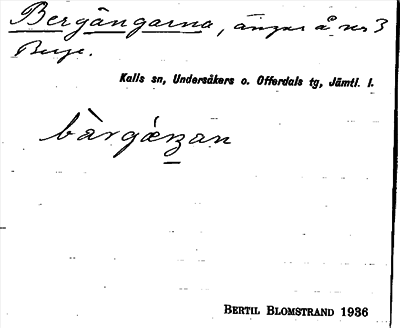 Bergängarna, ängar å nr 3
Berge.
Kalls sn, Undersåkers o. Offerdals tg, Jämtl. l.
bàrgáŋan
BERTIL BLOMSTRAND 1936